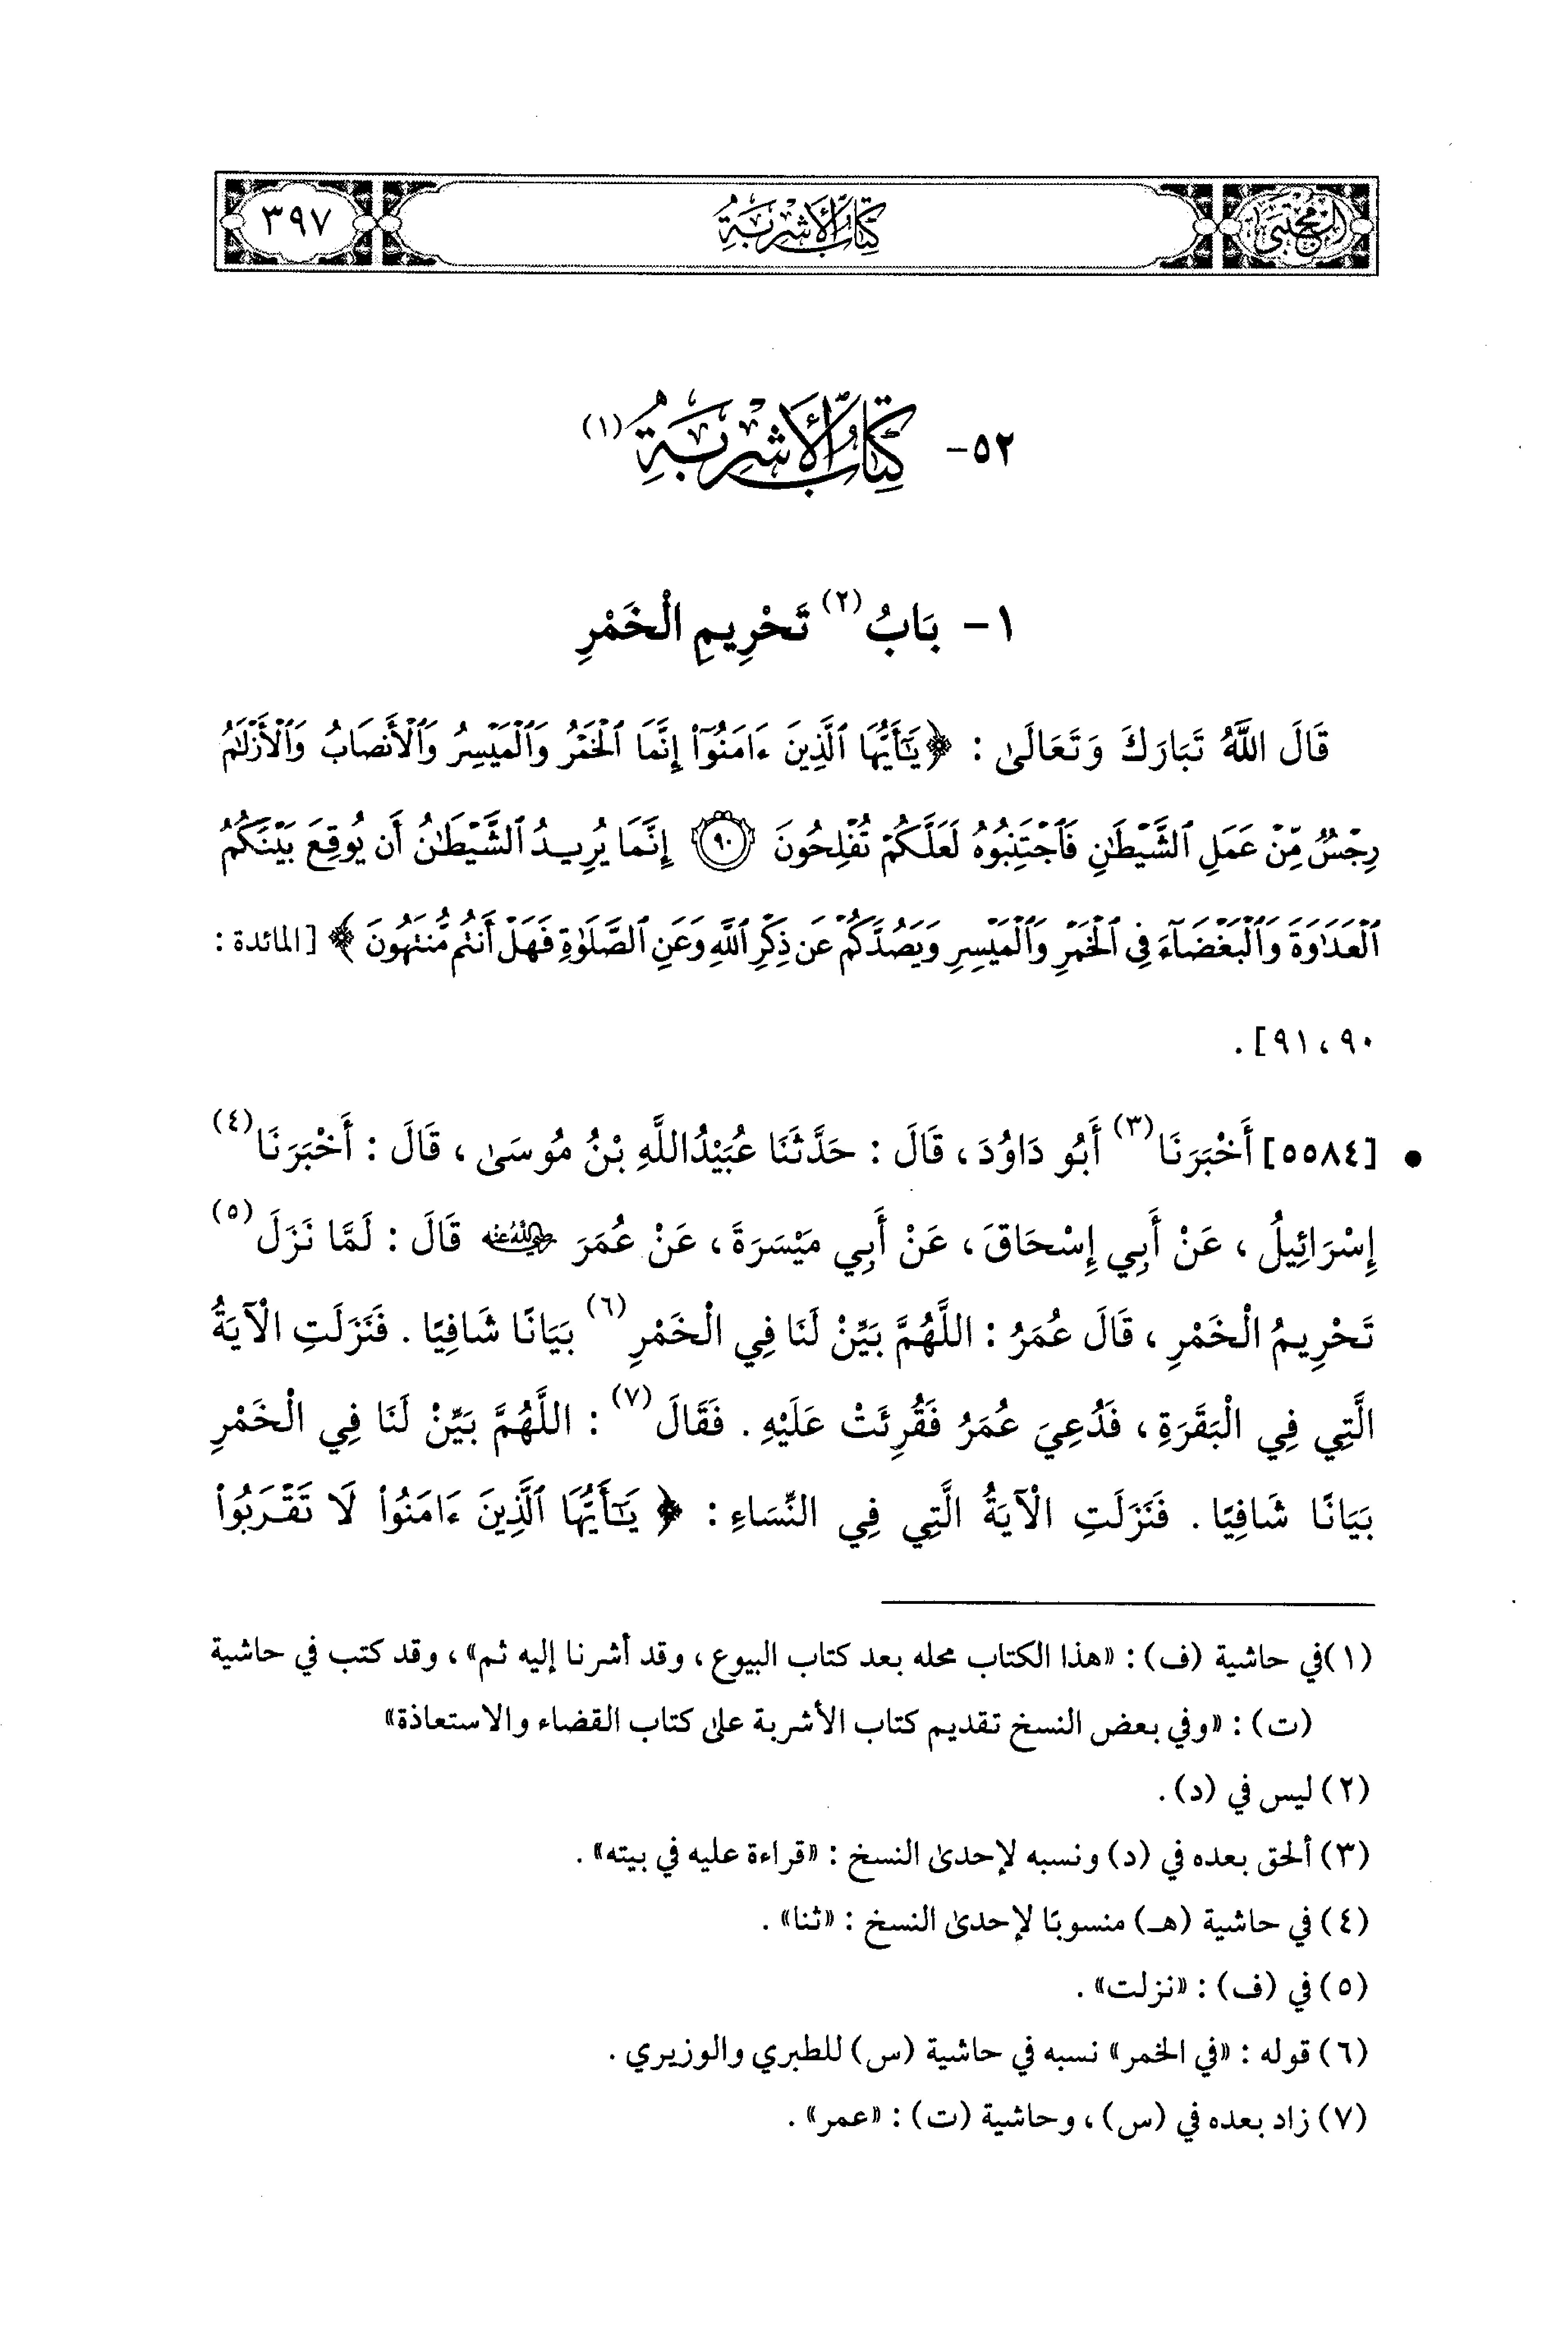 المجتبى
كتاب الأشربة
٣٩٧
٥٢- كِتَابُ الأَشْرِبَةِ (١)
١- بَابُ (٢) تَحْرِيمِ الْخَمْرِ
قَالَ اللَّهُ تَبَارَكَ وَتَعَالَىٰ : ﴿يَٰٓأَيُّهَا ٱلَّذِينَ ءَامَنُوٓا۟ إِنَّمَا ٱلْخَمْرُ وَٱلْمَيْسِرُ وَٱلْأَنصَابُ وَٱلْأَزْلَٰمُ
رِجْسٌ مِّنْ عَمَلِ ٱلشَّيْطَٰنِ فَٱجْتَنِبُوهُ لَعَلَّكُمْ تُفْلِحُونَ ٩٠ إِنَّمَا يُرِيدُ ٱلشَّيْطَٰنُ أَن يُوقِعَ بَيْنَكُمُ
ٱلْعَدَٰوَةَ وَٱلْبَغْضَآءَ فِى ٱلْخَمْرِ وَٱلْمَيْسِرِ وَيَصُدَّكُمْ عَن ذِكْرِ ٱللَّهِ وَعَنِ ٱلصَّلَوٰةِ فَهَلْ أَنتُم مُّنتَهُونَ﴾ [المائدة :
٩٠ ، ٩١] .
• [٥٥٨٤] أَخْبَرَنَا (٣) أَبُو دَاوُدَ ، قَالَ : حَدَّثَنَا عُبَيْدُاللَّهِ بْنُ مُوسَىٰ ، قَالَ : أَخْبَرَنَا (٤)
إِسْرَائِيلُ ، عَنْ أَبِي إِسْحَاقَ ، عَنْ أَبِي مَيْسَرَةَ ، عَنْ عُمَرَ رضي الله عنه قَالَ : لَمَّا نَزَلَ (٥)
تَحْرِيمُ الْخَمْرِ ، قَالَ عُمَرُ : اللَّهُمَّ بَيِّنْ لَنَا فِي الْخَمْرِ (٦) بَيَانًا شَافِيًا . فَنَزَلَتِ الْآيَةُ
الَّتِي فِي الْبَقَرَةِ ، فَدُعِيَ عُمَرُ فَقُرِئَتْ عَلَيْهِ . فَقَالَ (٧) : اللَّهُمَّ بَيِّنْ لَنَا فِي الْخَمْرِ
بَيَانًا شَافِيًا . فَنَزَلَتِ الْآيَةُ الَّتِي فِي النِّسَاءِ : ﴿يَٰٓأَيُّهَا ٱلَّذِينَ ءَامَنُوا۟ لَا تَقْرَبُوا۟
(١) في حاشية (ف) : «هذا الكتاب محله بعد كتاب البيوع ، وقد أشرنا إليه ثم» ، وقد كتب في حاشية
(ت) : «وفي بعض النسخ تقديم كتاب الأشربة علىٰ كتاب القضاء والاستعاذة»
(٢) ليس في (د) .
(٣) ألحق بعده في (د) ونسبه لإحدىٰ النسخ : «قراءة عليه في بيته» .
(٤) في حاشية (هـ) منسوبًا لإحدىٰ النسخ : «ثنا» .
(٥) في (ف) : «نزلت» .
(٦) قوله : «في الخمر» نسبه في حاشية (س) للطبري والوزيري .
(٧) زاد بعده في (س) ، وحاشية (ت) : «عمر» .